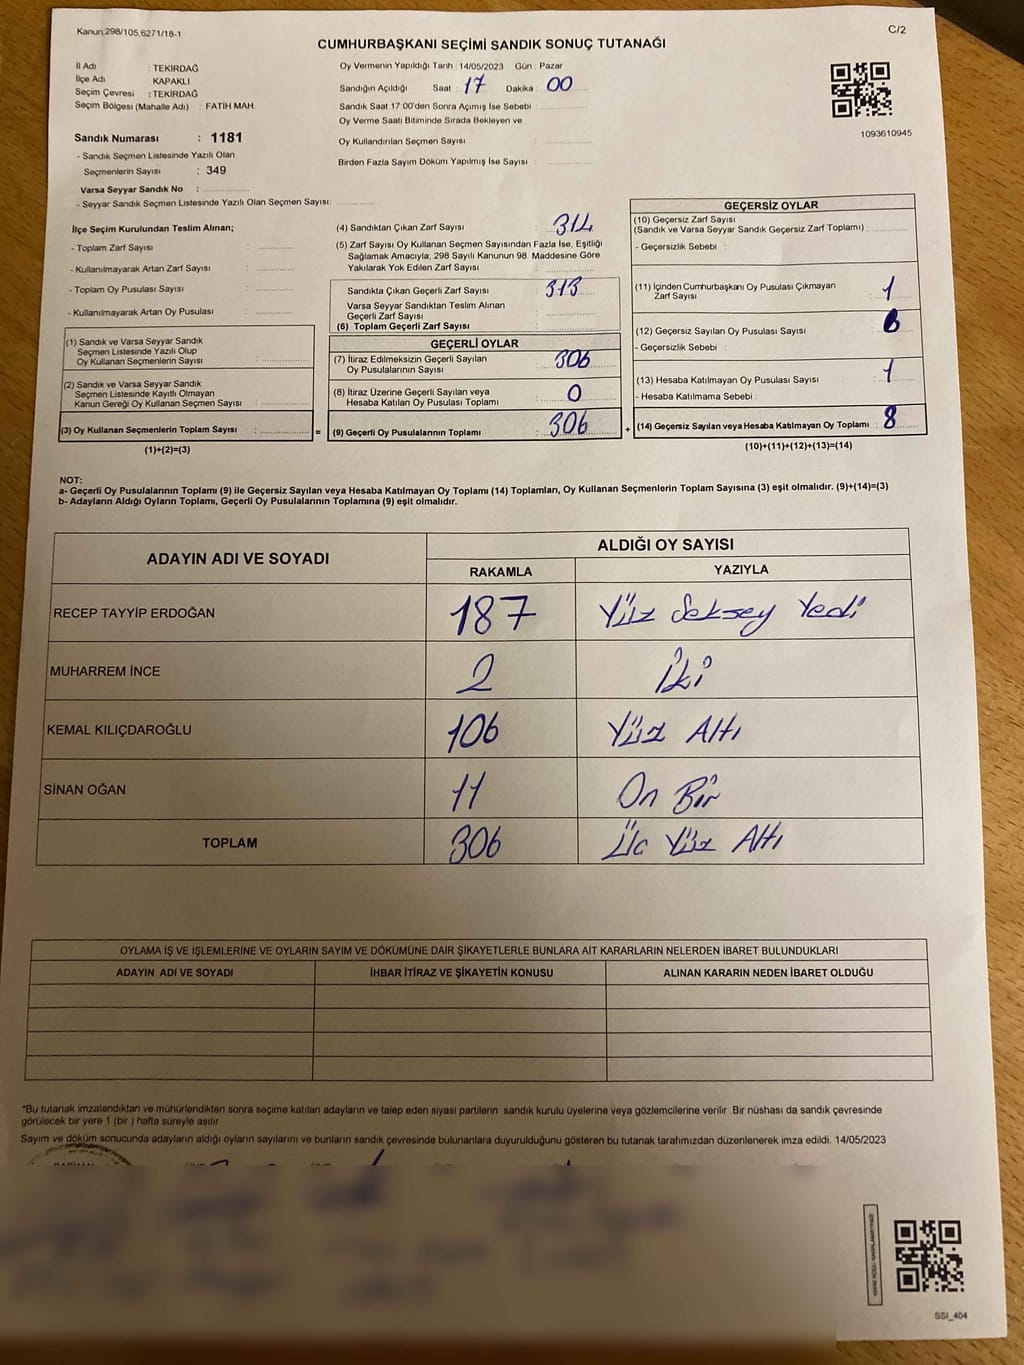 Kanun,298/105,6271/18-1
C/2
CUMHURBAŞKANI SEÇİMİ SANDIK SONUÇ TUTANAĞI
İl Adı : TEKİRDAĞ
İlçe Adı KAPAKLI
Seçim Çevresi : TEKİRDAĞ
Seçim Bölgesi (Mahalle Adı) : FATİH MAH.
Oy Vermenin Yapıldığı Tarih : 14/05/2023 Gün : Pazar
Sandığın Açıldığı Saat : 17 Dakika : 00
Sandık Saat 17:00'den Sonra Açımış İse Sebebi :
Oy Verme Saati Bitiminde Sırada Bekleyen ve
Oy Kullandırılan Seçmen Sayısı :
Birden Fazla Sayım Döküm Yapılmış İse Sayısı :
1093610945
Sandık Numarası : 1181
- Sandık Seçmen Listesinde Yazılı Olan
Seçmenlerin Sayısı : 349
Varsa Seyyar Sandık No :
- Seyyar Sandık Seçmen Listesinde Yazılı Olan Seçmen Sayısı:
İlçe Seçim Kurulundan Teslim Alınan;
- Toplam Zarf Sayısı :
- Kullanılmayarak Artan Zarf Sayısı :
- Toplam Oy Pusulası Sayısı :
- Kullanılmayarak Artan Oy Pusulası :
(1) Sandık ve Varsa Seyyar Sandık
Seçmen Listesinde Yazılı Olup
Oy Kullanan Seçmenlerin Sayısı :
(2) Sandık ve Varsa Seyyar Sandık
Seçmen Listesinde Kayıtlı Olmayan
Kanun Gereği Oy Kullanan Seçmen Sayısı :
(3) Oy Kullanan Seçmenlerin Toplam Sayısı : =
(1)+(2)=(3)
(4) Sandıktan Çıkan Zarf Sayısı : 314
(5) Zarf Sayısı Oy Kullanan Seçmen Sayısından Fazla İse, Eşitliği
Sağlamak Amacıyla; 298 Sayılı Kanunun 98. Maddesine Göre
Yakılarak Yok Edilen Zarf Sayısı :
Sandıkta Çıkan Geçerli Zarf Sayısı : 313
Varsa Seyyar Sandıktan Teslim Alınan
Geçerli Zarf Sayısı :
(6) Toplam Geçerli Zarf Sayısı :
GEÇERLİ OYLAR
(7) İtiraz Edilmeksizin Geçerli Sayılan
Oy Pusulalarının Sayısı : 306
(8) İtiraz Üzerine Geçerli Sayılan veya
Hesaba Katılan Oy Pusulası Toplamı : 0
(9) Geçerli Oy Pusulalarının Toplamı : 306 +
GEÇERSİZ OYLAR
(10) Geçersiz Zarf Sayısı
(Sandık ve Varsa Seyyar Sandık Geçersiz Zarf Toplamı) :
- Geçersizlik Sebebi :
(11) İçinden Cumhurbaşkanı Oy Pusulası Çıkmayan
Zarf Sayısı : 1
(12) Geçersiz Sayılan Oy Pusulası Sayısı : 6
- Geçersizlik Sebebi :
(13) Hesaba Katılmayan Oy Pusulası Sayısı : 1
- Hesaba Katılmama Sebebi :
(14) Geçersiz Sayılan veya Hesaba Katılmayan Oy Toplamı : 8
(10)+(11)+(12)+(13)=(14)
NOT:
a- Geçerli Oy Pusulalarının Toplamı (9) ile Geçersiz Sayılan veya Hesaba Katılmayan Oy Toplamı (14) Toplamları, Oy Kullanan Seçmenlerin Toplam Sayısına (3) eşit olmalıdır. (9)+(14)=(3)
b- Adayların Aldığı Oyların Toplamı, Geçerli Oy Pusulalarının Toplamına (9) eşit olmalıdır.
ADAYIN ADI VE SOYADI
ALDIĞI OY SAYISI
RAKAMLA YAZIYLA
RECEP TAYYİP ERDOĞAN 187 Yüz Seksey Yedi
MUHARREM İNCE 2 İki
KEMAL KILIÇDAROĞLU 106 Yüz Altı
SİNAN OĞAN 11 On Bir
TOPLAM 306 Üc Yüz Altı
OYLAMA İŞ VE İŞLEMLERİNE VE OYLARIN SAYIM VE DÖKÜMÜNE DAİR ŞİKAYETLERLE BUNLARA AİT KARARLARIN NELERDEN İBARET BULUNDUKLARI
ADAYIN ADI VE SOYADI İHBAR İTİRAZ VE ŞİKAYETİN KONUSU ALINAN KARARIN NEDEN İBARET OLDUĞU
*Bu tutanak imzalandıktan ve mühürlendikten sonra seçime katılan adayların ve talep eden siyasi partilerin sandık kurulu üyelerine veya gözlemcilerine verilir .Bir nüshası da sandık çevresinde
görülecek bir yere 1 (bir ) hafta süreyle asılır
Sayım ve döküm sonucunda adayların aldığı oyların sayılarını ve bunların sandık çevresinde bulunanlara duyurulduğunu gösteren bu tutanak tarafımızdan düzenlenerek imza edildi. 14/05/2023
SSI_404